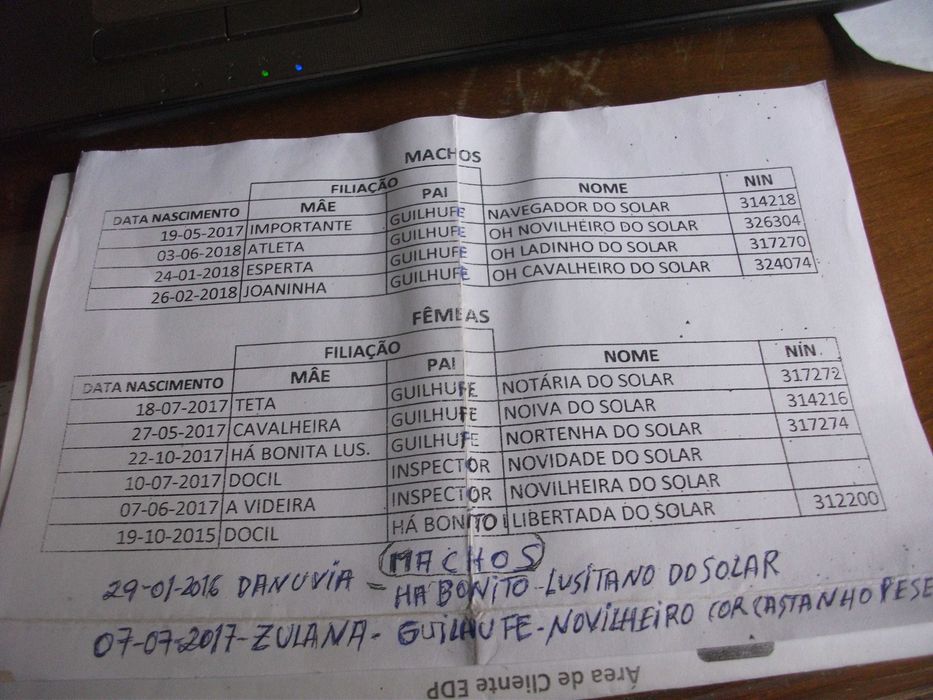 MACHOS
FILIAÇÃO NOME NIN
DATA NASCIMENTO MÃE PAI
19-05-2017 IMPORTANTE GUILHUFE NAVEGADOR DO SOLAR 314218
03-06-2018 ATLETA GUILHUFE OH NOVILHEIRO DO SOLAR 326304
24-01-2018 ESPERTA GUILHUFE OH LADINHO DO SOLAR 317270
26-02-2018 JOANINHA GUILHUFE OH CAVALHEIRO DO SOLAR 324074
FÊMEAS
FILIAÇÃO NOME NIN
DATA NASCIMENTO MÃE PAI
18-07-2017 TETA GUILHUFE NOTÁRIA DO SOLAR 317272
27-05-2017 CAVALHEIRA GUILHUFE NOIVA DO SOLAR 314216
22-10-2017 HÁ BONITA LUS. GUILHUFE NORTENHA DO SOLAR 317274
10-07-2017 DOCIL INSPECTOR NOVIDADE DO SOLAR
07-06-2017 A VIDEIRA INSPECTOR NOVILHEIRA DO SOLAR
19-10-2015 DOCIL HÁ BONITO LIBERTADA DO SOLAR 312200
MACHOS
29-01-2016 DANUVIA = HA BONITO-LUSITANO DO SOLAR
07-07-2017-ZULANA- GUILHUFE-NOVILHEIRO COR CASTANHO PESE
Área de Cliente EDP